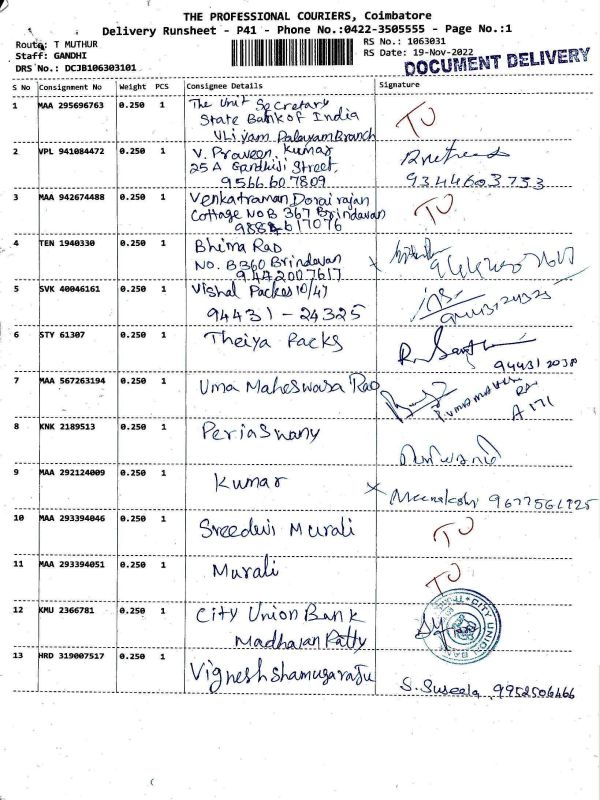 THE PROFESSIONAL COURIERS, Coimbatore
Delivery Runsheet - P41 - Phone No.:0422-3505555 - Page No.:1
Route: T MUTHUR
RS No.: 1063031
Staff: GANDHI
RS Date: 19-Nov-2022
DRS No.: DCJB106303101
DOCUMENT DELIVERY
S No Consignment No Weight PCS Consignee Details Signature
1 MAA 295696763 0.250 1 The Unit Secretary
State Bank of India
Vliyam Palayam Branch
TO
2 VPL 941084472 0.250 1 V. Praveen Kumar
25 A Gandhiji Street,
9566607809
9344603753
3 MAA 942674488 0.250 1 Venkatraman Dorairajan
Cottage No B 367 Brindavan
TO
4 TEN 1940330 0.250 1 Bhima Rao
No. B360 Brindavan
9442007617
5 SVK 40046161 0.250 1 Vishal Packes 10/47
94431-24325
6 STY 61307 0.250 1 Theiya Packs
7 MAA 567263194 0.250 1 Uma Maheswara Rao
A 171
8 KNK 2189513 0.250 1 Periaswany
9 MAA 292124009 0.250 1 Kumar
x Meenakshi
10 MAA 293394046 0.250 1 Sreedevi Murali
TO
11 MAA 293394051 0.250 1 Murali
TO
12 KMU 2366781 0.250 1 City Union Bank
Madhavan Patty
CITY UNION BANK
13 HRD 319007517 0.250 1 Vignesh Shamugaraju
S. Suseela 9952506466